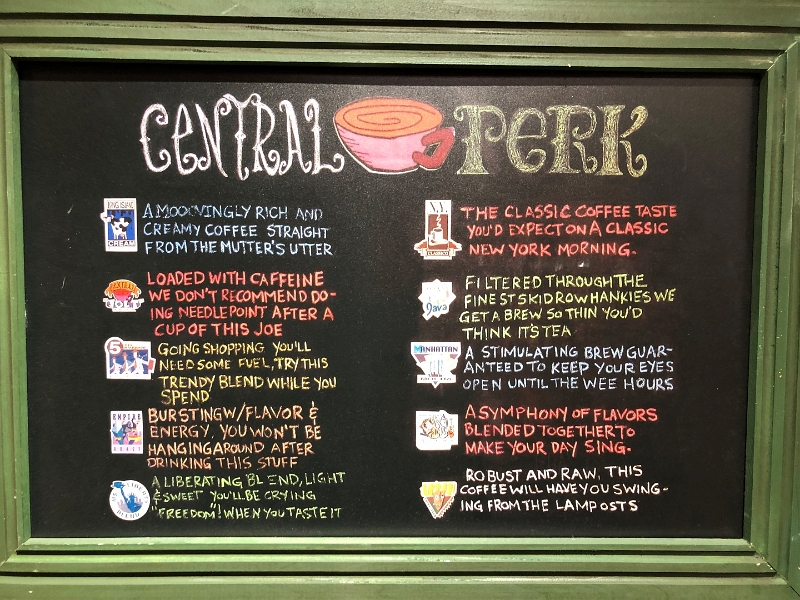 CENTRAL PERK
LONG ISLAND
CREAM
A MOOOVINGLY RICH AND
CREAMY COFFEE STRAIGHT
FROM THE MUTTER'S UTTER
JOLT
LOADED WITH CAFFEINE
WE DON'T RECOMMEND DO-
ING NEEDLEPOINT AFTER A
CUP OF THIS JOE
5
GOING SHOPPING YOU'LL
NEED SOME FUEL, TRY THIS
TRENDY BLEND WHILE YOU
SPEND
EMPIRE
ROAST
BURSTING W/FLAVOR &
ENERGY, YOU WON'T BE
HANGING AROUND AFTER
DRINKING THIS STUFF
LIBERTY
BLEND
A LIBERATING BLEND, LIGHT
& SWEET YOU'LL BE CRYING
"FREEDOM"! WHEN YOU TASTE IT
N.Y.
CLASSIC
THE CLASSIC COFFEE TASTE
YOU'D EXPECT ON A CLASSIC
NEW YORK MORNING.
Java
FILTERED THROUGH THE
FINEST SKIDROW HANKIES WE
GET A BREW SO THIN YOU'D
THINK IT'S TEA
MANHATTAN
A STIMULATING BREW GUAR-
ANTEED TO KEEP YOUR EYES
OPEN UNTIL THE WEE HOURS
A SYMPHONY OF FLAVORS
BLENDED TOGETHER TO
MAKE YOUR DAY SING.
ROBUST AND RAW, THIS
COFFEE WILL HAVE YOU SWING-
ING FROM THE LAMPOSTS